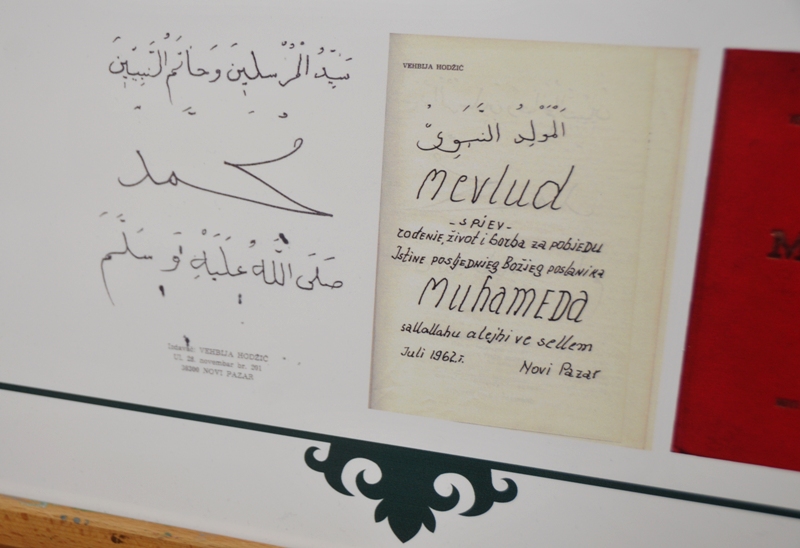 سَيِّدُ الْمُرْسَلِينَ وَخَاتَمُ النَّبِيِّينَ
مُحَمَّدٌ
صَلَّى اللَّهُ عَلَيْهِ وَسَلَّمَ
VEHBIJA HODŽIĆ
Ul. 28. novembar br.
NOVI PAZAR
VEHBIJA HODŽIĆ
اَلْمَوْلِدُ النَّبَوِيُّ
Mevlud
- SPJEV -
rođenje, život i borba za pobjedu
Istine posljednjeg Božjeg poslanika
Muhameda
sallallahu alejhi ve sellem
Juli 1962.г.
Novi Pazar
M